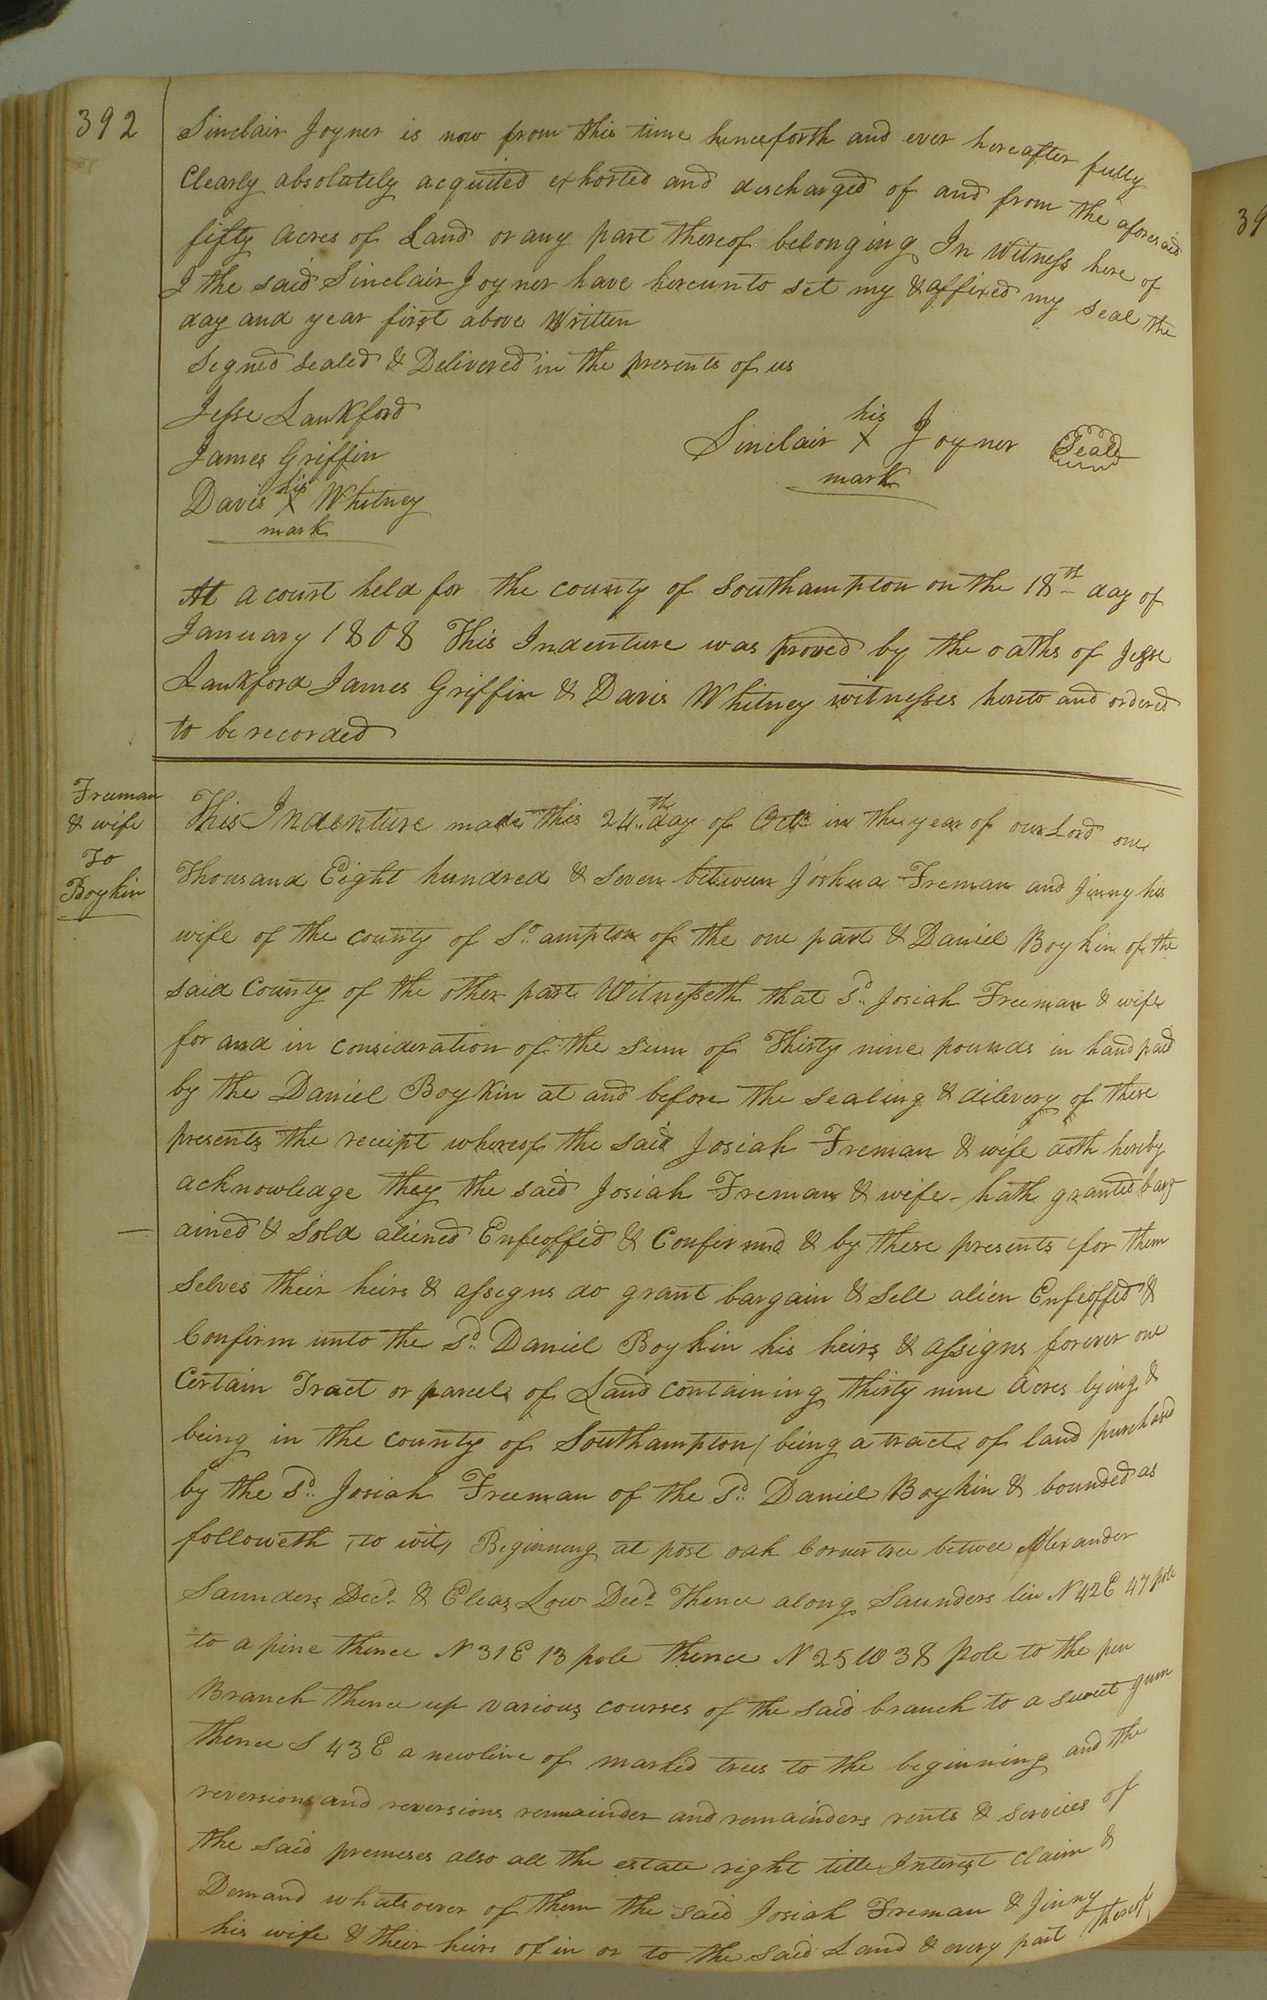 392
Sinclair Joyner is now from this time henceforth and ever hereafter fully
Clearly absolutely acquited exhorted and discharged of and from the aforesaid
fifty acres of Land or any part thereof belonging In Witness here of
I the said Sinclair Joyner have hereunto set my & affixed my seal the
day and year first above Written
Segned sealed & Delivered in the presents of us
Jesse Lankford
James Griffin
his
Davis X Whitney
mark
his
Sinclair X Joyner Seal
mark
At a court held for the county of Southampton on the 18th day of
January 1808 This Indenture was proved by the oaths of Jesse
Lankford James Griffin & Davis Whitney witnesses hereto and ordered
to be recorded
Freeman
& wife
To
Boykin
This Indenture made this 24th day of Octr in the year of our Lord one
Thousand Eight hundred & Seven between Joshua Freman and Jinny his
wife of the county of So.ampton of the one part & Daniel Boykin of the
said County of the other part Witnesseth that Sd. Josiah Freeman & wife
for and in consideration of the sum of Thirty nine pounds in hand paid
by the Daniel Boykin at and before the sealing & dilevery of these
presents the receipt whereof the said Josiah Freman & wife doth hereby
acknowledge they the said Josiah Freman & wife - hath granted barg
ained & Sold aliened Enfeoffed & Confirmd & by these presents for them
selves their heirs & assigns do grant bargain & Sell alien Enfeoffed &
Confirm unto the Sd. Daniel Boykin his heirs & assigns forever one
Certain Tract or parcel of Land containing thirty nine Acres lying &
being in the county of Southampton (being a tract of land purchased
by the Sd. Josiah Freeman of the Sd. Daniel Boykin & bounded as
followeth, to wit, Beginning at post oak Corner tree betwee Alexander
Saunders Decd. & Elias Low Decd. Thence along Saunders lin N 42 E 47 pole
to a pine thence N 31 E 13 pole thence N 25 W 38 Pole to the pen
Branch thence up various courses of the said branch to a sweet gum
thence S 43 E a new line of marked trees to the beginning and the
reversion and reversions remainder and remainders rents & services of
the said premeses also all the estate right title Interest claim &
Demand whatsoever of them the said Josiah Freman & Jinny
his wife & their heirs of in or to the said Land & every part thereof
39